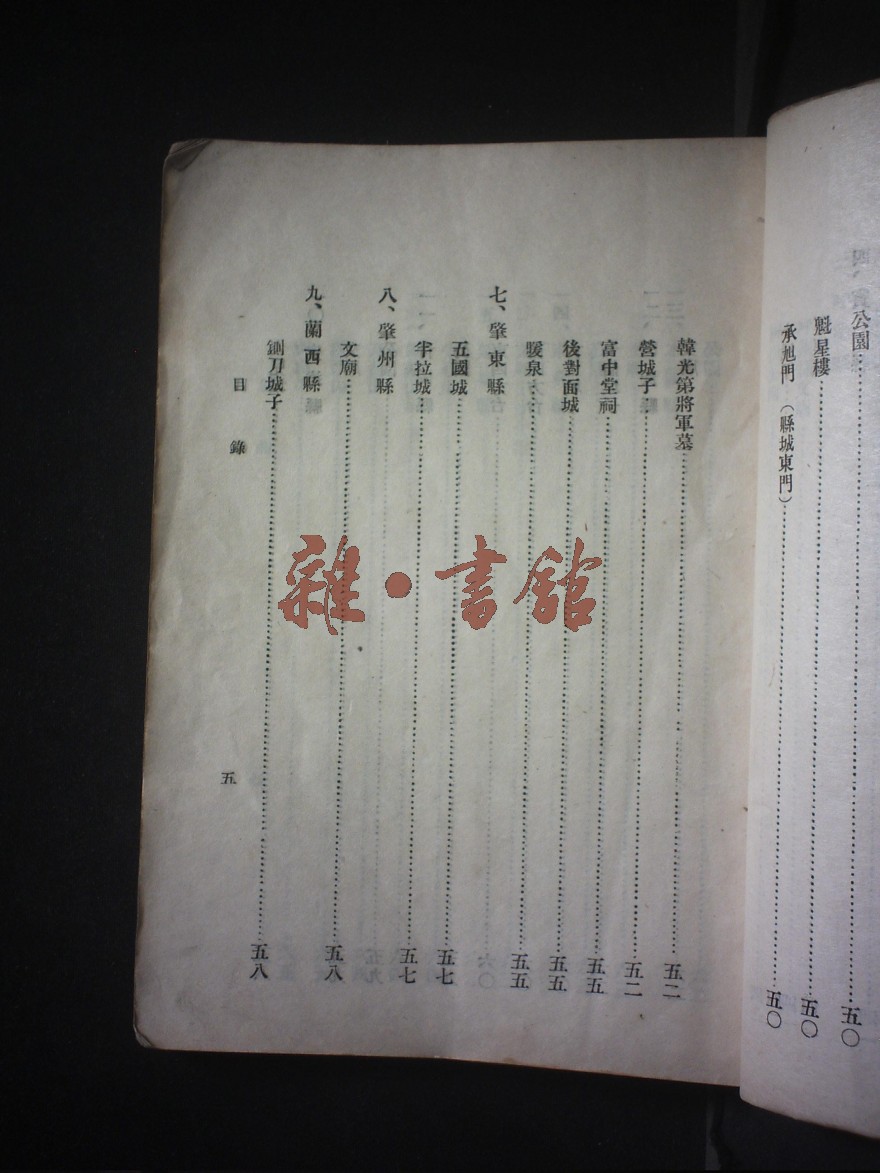 公園……五〇
魁星樓……五〇
承旭門（縣城東門）……五〇
韓光第將軍墓……五二
營城子……五二
富中堂祠……五五
後對面城……五五
暖泉……五五
七、肇東縣
五國城……五七
半拉城……五七
八、肇州縣
文廟……五八
九、蘭西縣
鍘刀城子……五八
目錄
五
雜·書館